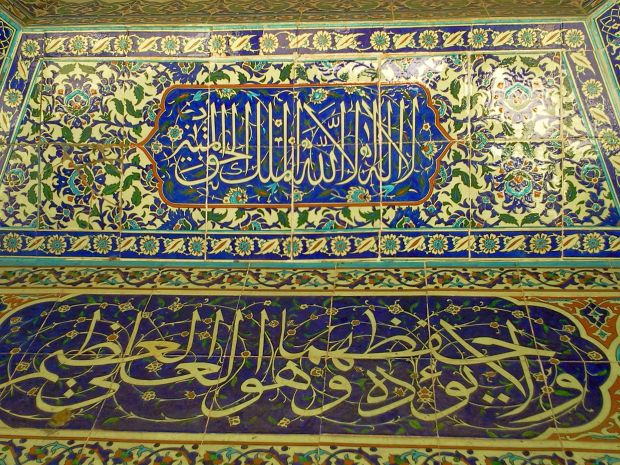 لا إله إلا الله الملك الحق المبين
ولا يؤده حفظهما وهو العلي العظيم